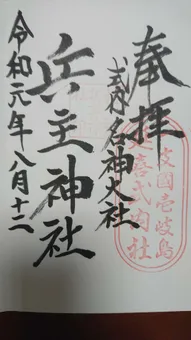 奉拝
式内名神大社
兵主神社
令和元年八月十二
壱岐國壱岐島
延喜式内社